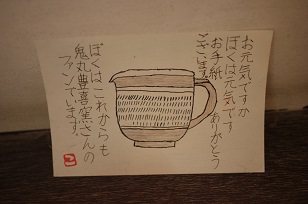 お元気ですか
ぼくは元気です
お手紙 ありがとう
ございます。
ぼくはこれからも
鬼丸豊喜窯さんの
ファンでいます。